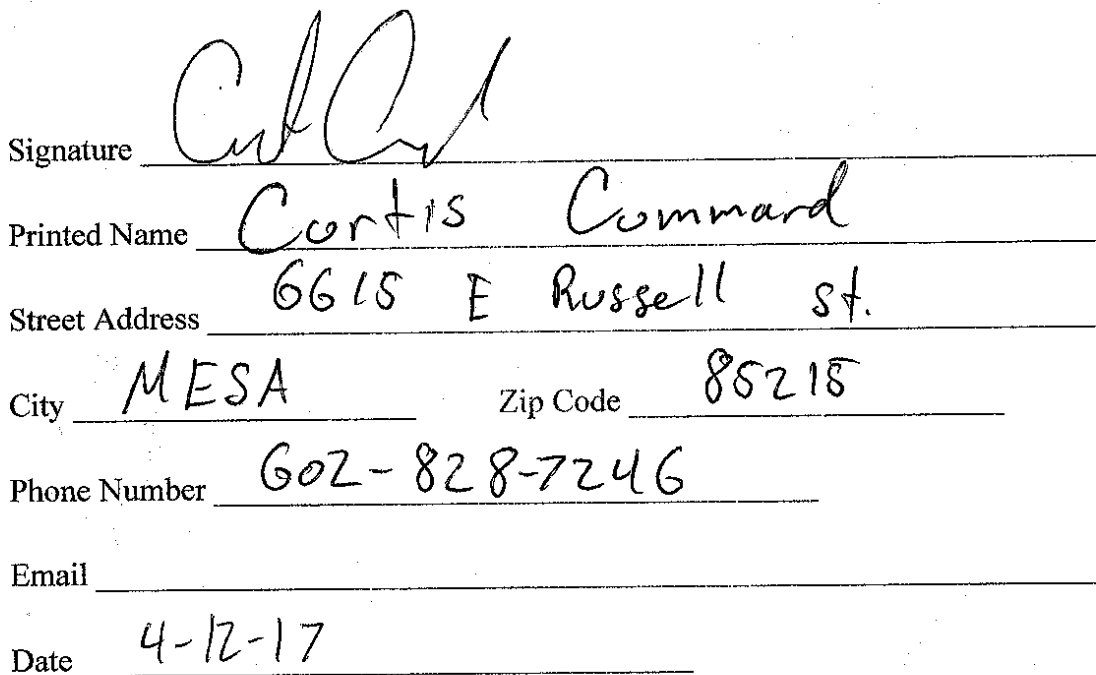 Signature
Printed Name Curtis Command
Street Address 6615 E Russell St.
City MESA Zip Code 85215
Phone Number 602-828-7246
Email
Date 4-12-17